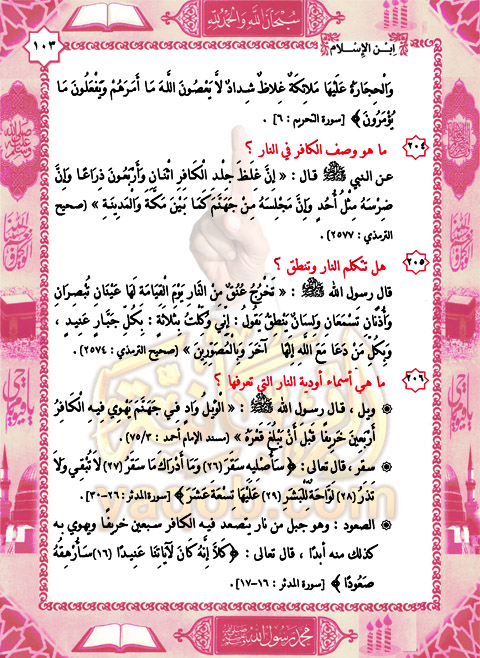 سُبْحَانَ اللَّهِ وَالْحَمْدُ لِلَّهِ
ابن الإسلام
١٠٣
وَالْحِجَارَةُ عَلَيْهَا مَلَائِكَةٌ غِلَاظٌ شِدَادٌ لَّا يَعْصُونَ اللَّهَ مَا أَمَرَهُمْ وَيَفْعَلُونَ مَا
يُؤْمَرُونَ ﴾ [سورة التحريم : ٦] .
٢٠٤ ما هو وصف الكافر في النار ؟
عن النبي ﷺ قال : « إِنَّ غِلَظَ جِلْدِ الْكَافِرِ اثْنَانِ وَأَرْبَعُونَ ذِرَاعًا وَإِنَّ
ضِرْسَهُ مِثْلُ أُحُدٍ وَإِنَّ مَجْلِسَهُ مِنْ جَهَنَّمَ كَمَا بَيْنَ مَكَّةَ وَالْمَدِينَةِ » (صحيح
الترمذي : ٢٥٧٧) .
٢٠٥ هل تتكلم النار وتنطق ؟
قال رسول الله ﷺ : « تَخْرُجُ عُنُقٌ مِنَ النَّارِ يَوْمَ الْقِيَامَةِ لَهَا عَيْنَانِ تُبْصِرَانِ
وَأُذُنَانِ تَسْمَعَانِ وَلِسَانٌ يَنْطِقُ يَقُولُ : إِنِّي وُكِّلْتُ بِثَلَاثَةٍ : بِكُلِّ جَبَّارٍ عَنِيدٍ ،
وَبِكُلِّ مَنْ دَعَا مَعَ اللَّهِ إِلَهًا آخَرَ وَبِالْمُصَوِّرِينَ » (صحيح الترمذي : ٢٥٧٤) .
٢٠٦ ما هي أسماء أودية النار التي تعرفها ؟
ويل ، قال رسول الله ﷺ : « الْوَيْلُ وَادٍ فِي جَهَنَّمَ يَهْوِي فِيهِ الْكَافِرُ
أَرْبَعِينَ خَرِيفًا قَبْلَ أَنْ يَبْلُغَ قَعْرَهُ » (مسند الإمام أحمد : ٧٥/٣) .
سقر ، قال تعالى : ﴿ سَأُصْلِيهِ سَقَرَ (٢٦) وَمَا أَدْرَاكَ مَا سَقَرُ (٢٧) لَا تُبْقِي وَلَا
تَذَرُ (٢٨) لَوَّاحَةٌ لِّلْبَشَرِ (٢٩) عَلَيْهَا تِسْعَةَ عَشَرَ ﴾ [سورة المدثر : ٢٦-٣٠] .
الصعود : وهو جبل من نار يتصعد فيه الكافر سبعين خريفًا ويهوي به
كذلك منه أبدًا ، قال تعالى : ﴿ كَلَّا إِنَّهُ كَانَ لِآيَاتِنَا عَنِيدًا (١٦) سَأُرْهِقُهُ
صَعُودًا ﴾ [سورة المدثر : ١٦-١٧] .
yadob.com
محمد رسول الله ﷺ